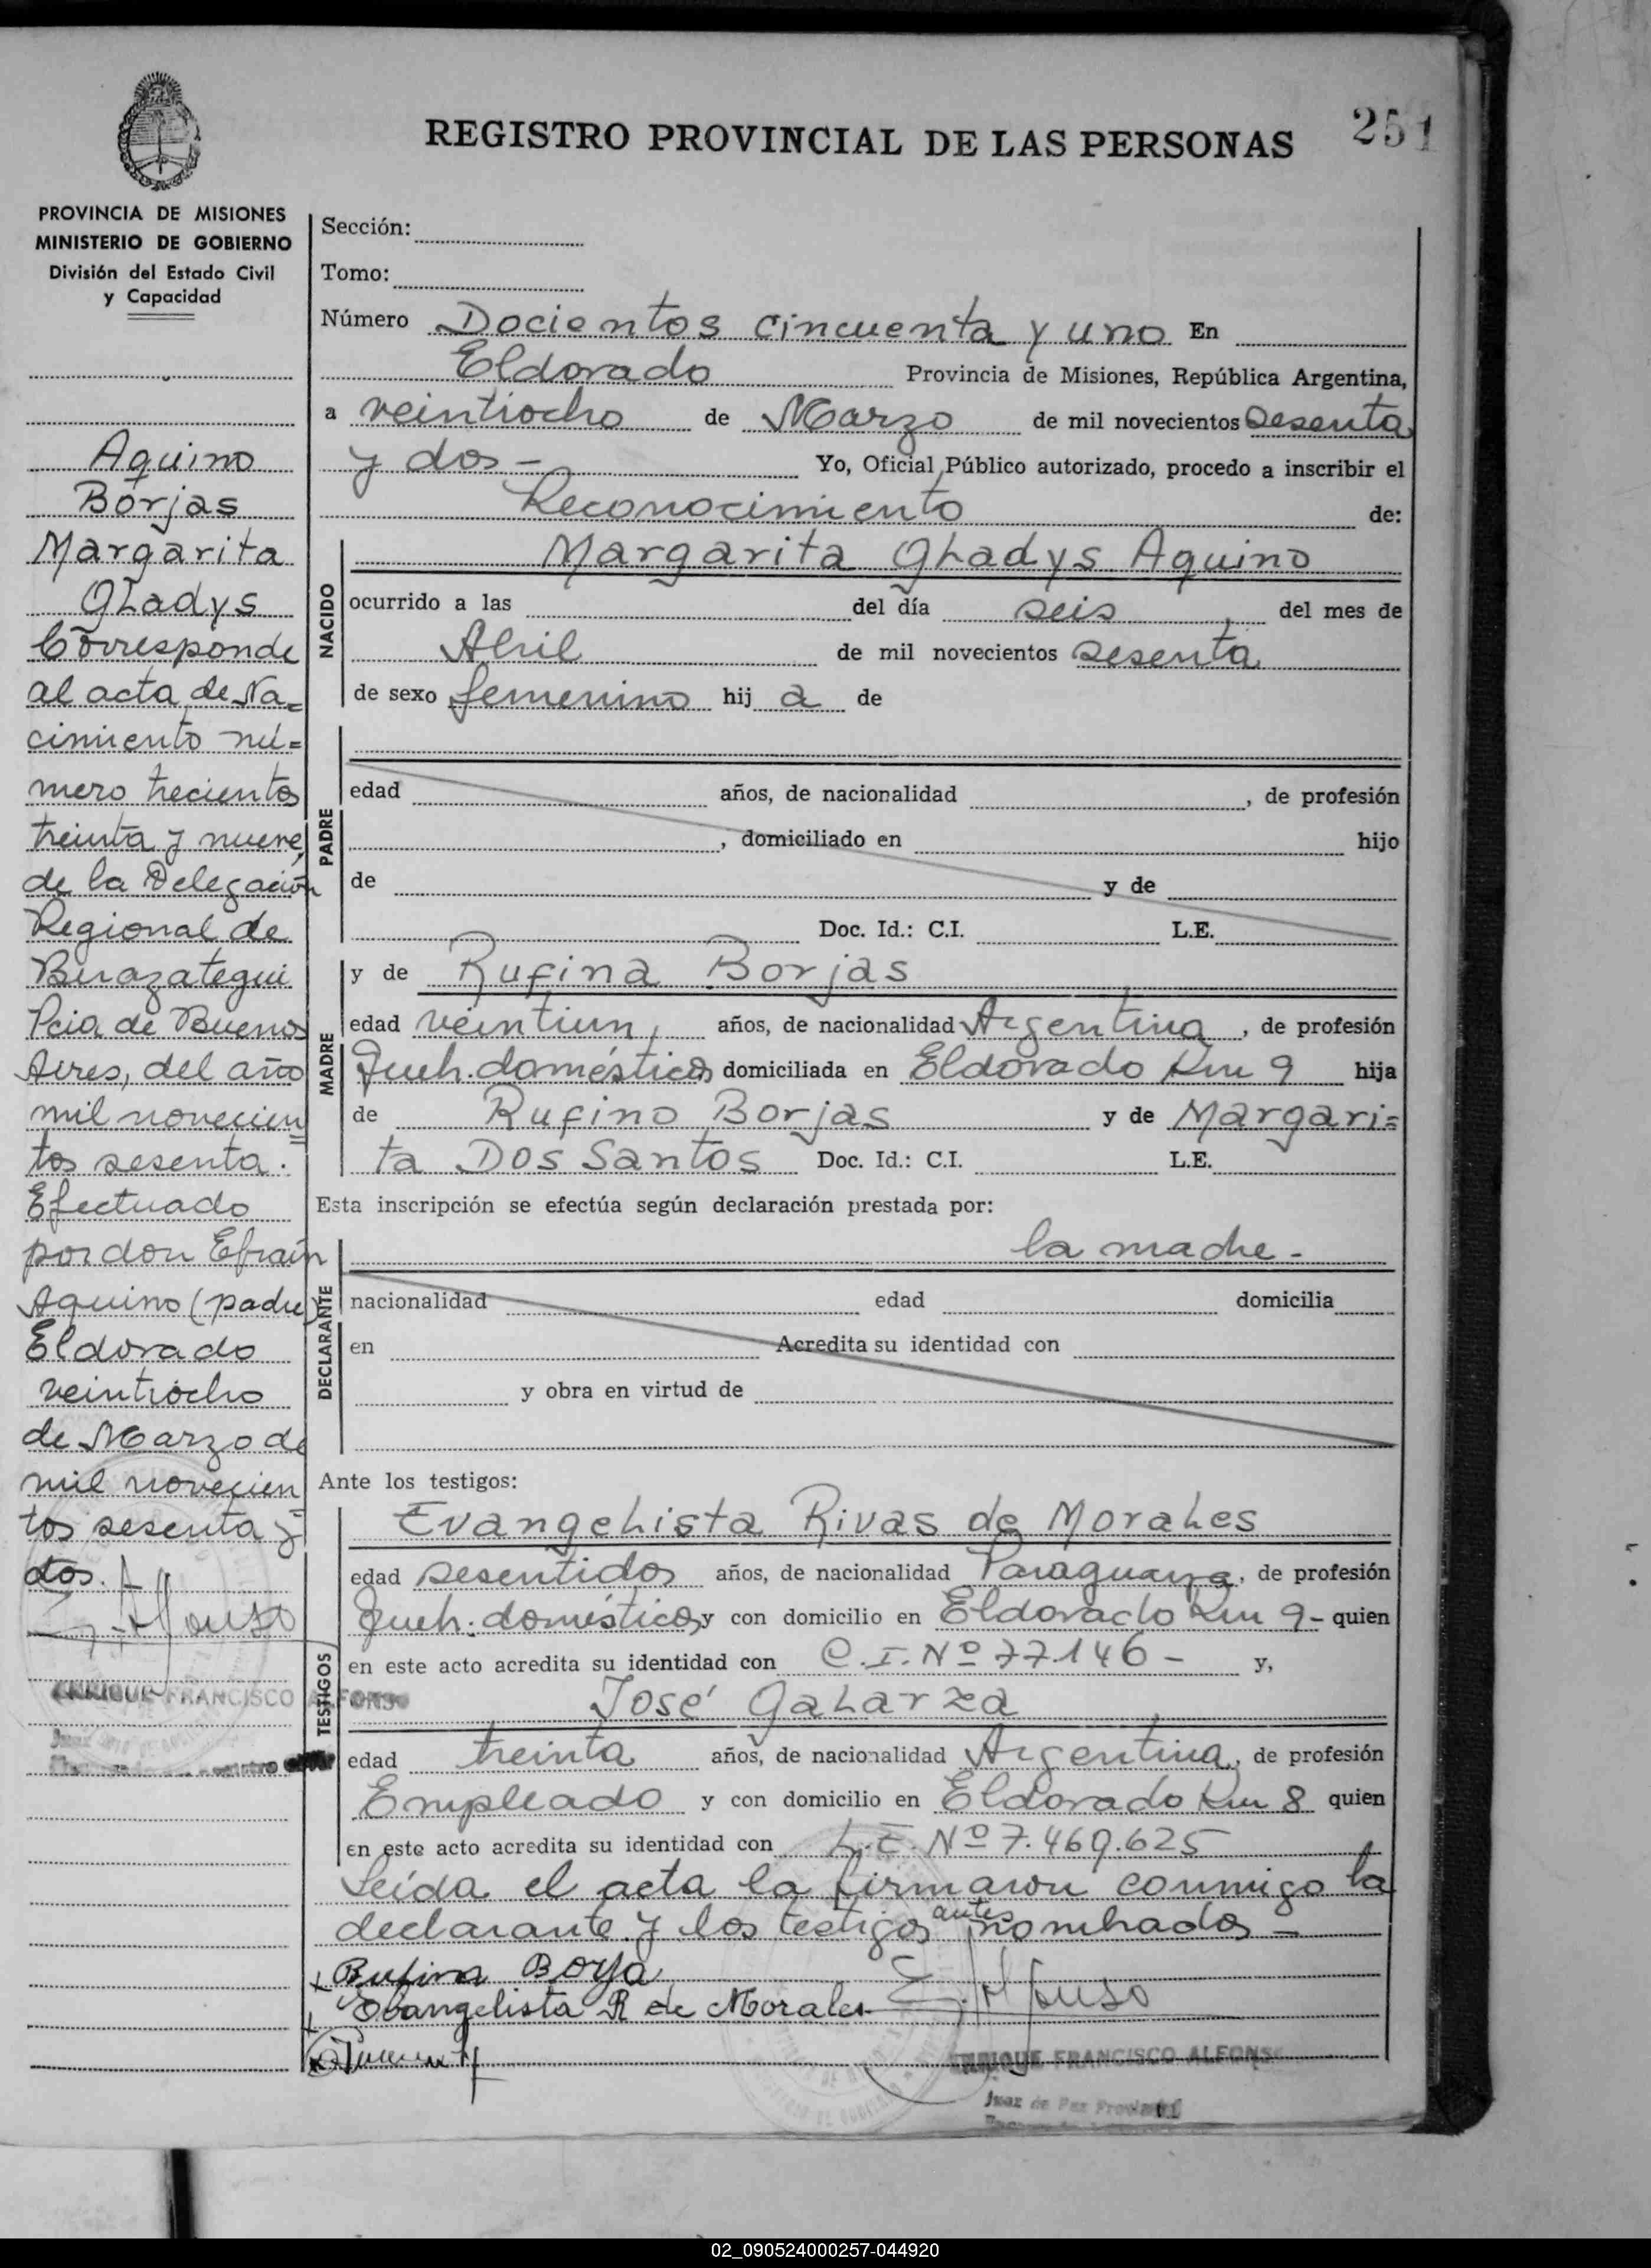 251
REGISTRO PROVINCIAL DE LAS PERSONAS
PROVINCIA DE MISIONES
MINISTERIO DE GOBIERNO
División del Estado Civil
y Capacidad
Aquino
Borjas
Margarita
Gladys
Corresponde
al acta de Na=
cimiento nú=
mero trecientos
treinta y nueve,
de la Delegación
Regional de
Berazategui
Pcia de Buenos
Aires, del año
mil novecien=
tos sesenta.
Efectuado
por don Efraín
Aquino (padre)
Eldorado
veintiocho
de Marzo de
mil novecien=
tos sesenta y
dos.
E. Alfonso
ENRIQUE FRANCISCO ALFONSO
Juez
Sección:
Tomo:
Número Docientos cincuenta y uno En
Eldorado Provincia de Misiones, República Argentina,
a veintiocho de Marzo de mil novecientos sesenta
y dos - Yo, Oficial Público autorizado, procedo a inscribir el
Reconocimiento de:
NACIDO
Margarita Gladys Aquino
ocurrido a las del día seis, del mes de
Abril de mil novecientos sesenta
de sexo femenino hij a de
PADRE
edad años, de nacionalidad , de profesión
, domiciliado en hijo
de y de
Doc. Id.: C.I. L.E.
MADRE
y de Rufina Borjas
edad veintiun, años, de nacionalidad Argentina, de profesión
Queh. domésticos domiciliada en Eldorado Km 9 hija
de Rufino Borjas y de Margari=
ta Dos Santos Doc. Id.: C.I. L.E.
Esta inscripción se efectúa según declaración prestada por:
DECLARANTE
la madre -
nacionalidad edad domicilia
en Acredita su identidad con
y obra en virtud de
Ante los testigos:
TESTIGOS
Evangelista Rivas de Morales
edad sesentidos años, de nacionalidad Paraguaya, de profesión
Queh. domésticos y con domicilio en Eldorado Km 9 - quien
en este acto acredita su identidad con C.I. Nº 77.146 - y,
José Galarza
edad treinta años, de nacionalidad Argentina, de profesión
Empleado y con domicilio en Eldorado Km 8 quien
en este acto acredita su identidad con L.E. Nº 7.469.625
Leída el acta la firmaron conmigo la
declarante y los testigos antes nombrados -
Rufina Borja
Ebangelista R de Morales
E. Alfonso
ENRIQUE FRANCISCO ALFONSO
Juez de Paz Provincial
02_090524000257-044920